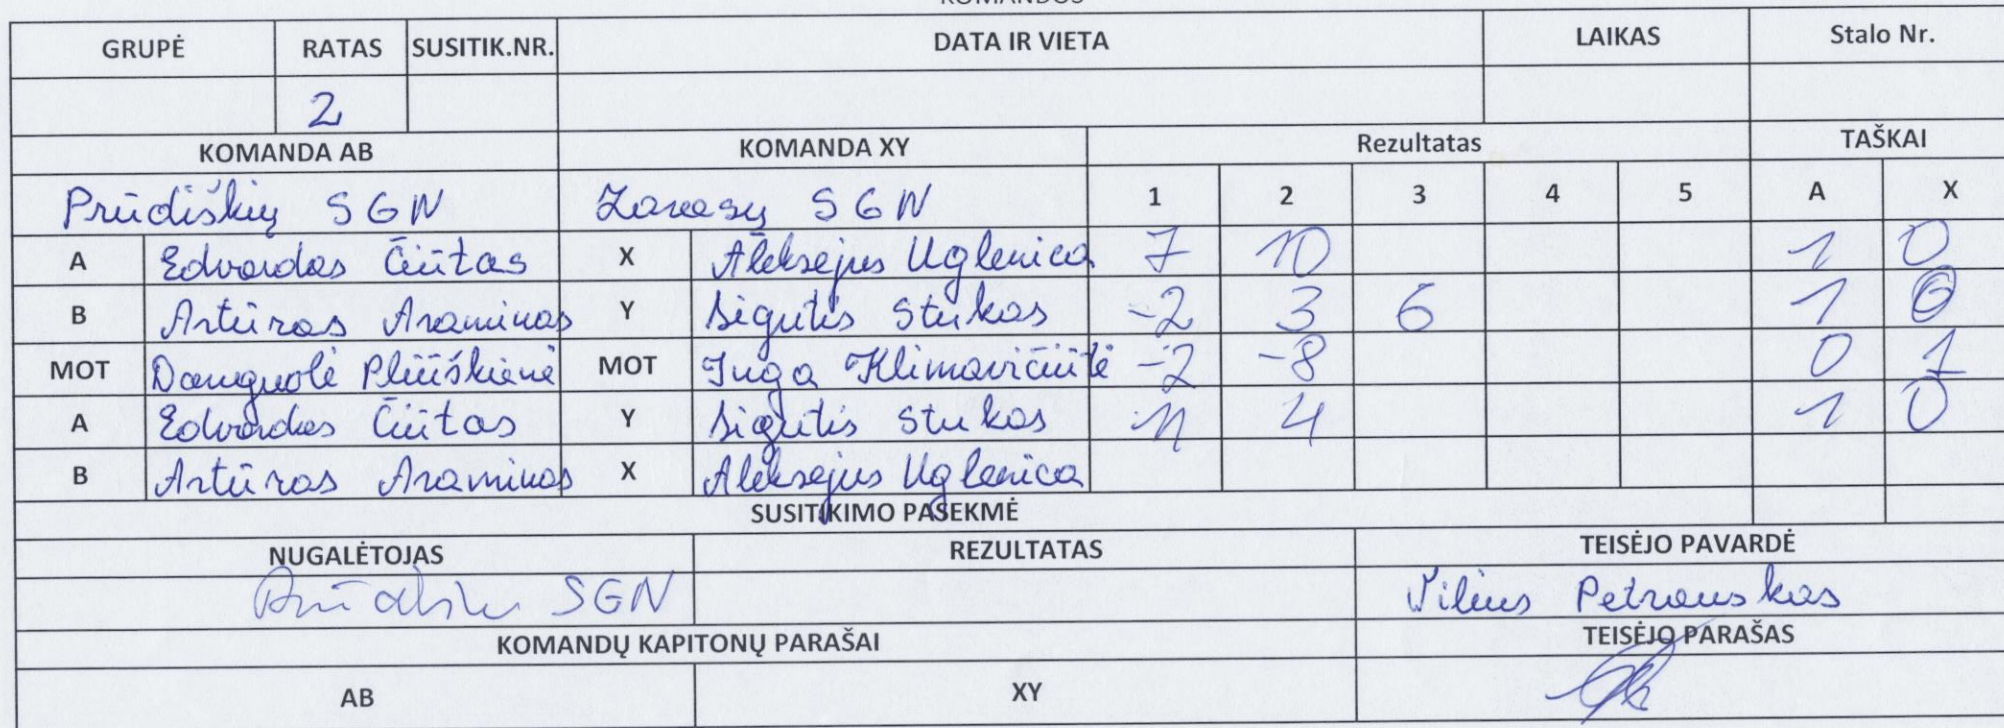 KOMANDOS
GRUPĖ RATAS SUSITIK.NR. DATA IR VIETA LAIKAS Stalo Nr.
2
KOMANDA AB KOMANDA XY Rezultatas TAŠKAI
Prūdiškių SGN Zarasų SGN 1 2 3 4 5 A X
A Edvardas Čiūtas X Aleksejus Uglenica 7 10 1 0
B Artūras Araminas Y Sigutis Stukas -2 3 6 1 0
MOT Danguolė Pliūškienė MOT Inga Klimavičiūtė -2 -8 0 1
A Edvardas Čiūtas Y Sigutis Stukas 11 4 1 0
B Artūras Araminas X Aleksejus Uglenica
SUSITIKIMO PASEKMĖ
NUGALĖTOJAS REZULTATAS TEISĖJO PAVARDĖ
SGN Vilius Petrauskas
KOMANDŲ KAPITONŲ PARAŠAI TEISĖJO PARAŠAS
AB XY